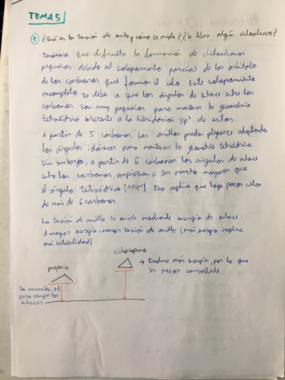 TEMA 5
① ¿Qué es la tensión de anillo y cómo se mide? ¿La libra algún cicloalcano?
Fenómeno que dificulta la formación de cicloalcanos
pequeños debido al solapamiento parcial de los orbitales
de los carbonos que forman el ciclo. Este solapamiento
incompleto se debe a que los ángulos de enlace entre los
carbonos son muy pequeños para mantener la geometría
tetraédrica inherente a la hibridación sp³ de estos.
A partir de 5 carbonos, los anillos pueden plegarse adoptando
los ángulos idóneos para mantener la geometría tetraédrica.
Sin embargo, a partir de 6 carbonos los ángulos de enlace
entre los carbonos empiezan a ser mucho mayores que
el ángulo tetraédrico (109°). Eso explica que haya pocos ciclos
de más de 6 carbonos.
La tensión de anillo se mide mediante energía de enlace:
A mayor energía menor tensión de anillo (más energía implica
más estabilidad)
propano
ciclopropano
→ Produce más energía, por lo que
es mejor combustible
Se necesita
para romper los
enlaces